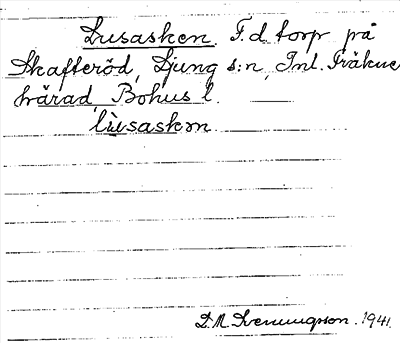 Lusasken. F.d torp på
Skafteröd, Ljung s:n, Inl. Fräkne
härad, Bohus l.
lùsaskən
D. M. Svenungsson. 1941.